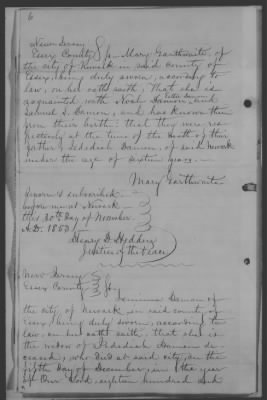 6
New Jersey
Essex County } ss Mary Garthwaite, of
the city of Newark in said county of
Essex, being duly sworn, according to
law, on her oath saith, That she is
acquainted with Noah Damon, and
Samuel S. Damon, and has known them
from their birth: that they were
respectively at the time of the death of their
father, Jedediah Damon, of said Newark
under the age of sixteen years.
Mary Garthwaite
Sworn & subscribed
before me at Newark
this 30th Day of November
A.D. 1853
Henry D.
Justice of the Peace
New Jersey
Essex County } ss
Damon of
the city of Newark in said county of
Essex, being duly sworn, according to
law, on her oath saith, that she is
the widow of Jedediah Damon
deceased, who died at said city, on the
fifth Day of December, in the year
of Our Lord eighteen hundred and